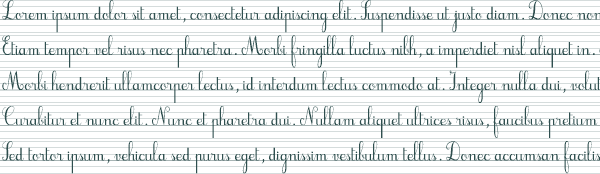 Lorem ipsum dolor sit amet, consectetur adipiscing elit. Suspendisse ut justo diam. Donec non
Etiam tempor vel risus nec pharetra. Morbi fringilla luctus nibh, a imperdiet nisl aliquet in.
Morbi hendrerit ullamcorper lectus, id interdum lectus commodo at. Integer nulla dui, volut
Curabitur et nunc elit. Nunc et pharetra dui. Nullam aliquet ultrices risus, faucibus pretium
Sed tortor ipsum, vehicula sed purus eget, dignissim vestibulum tellus. Donec accumsan facilis